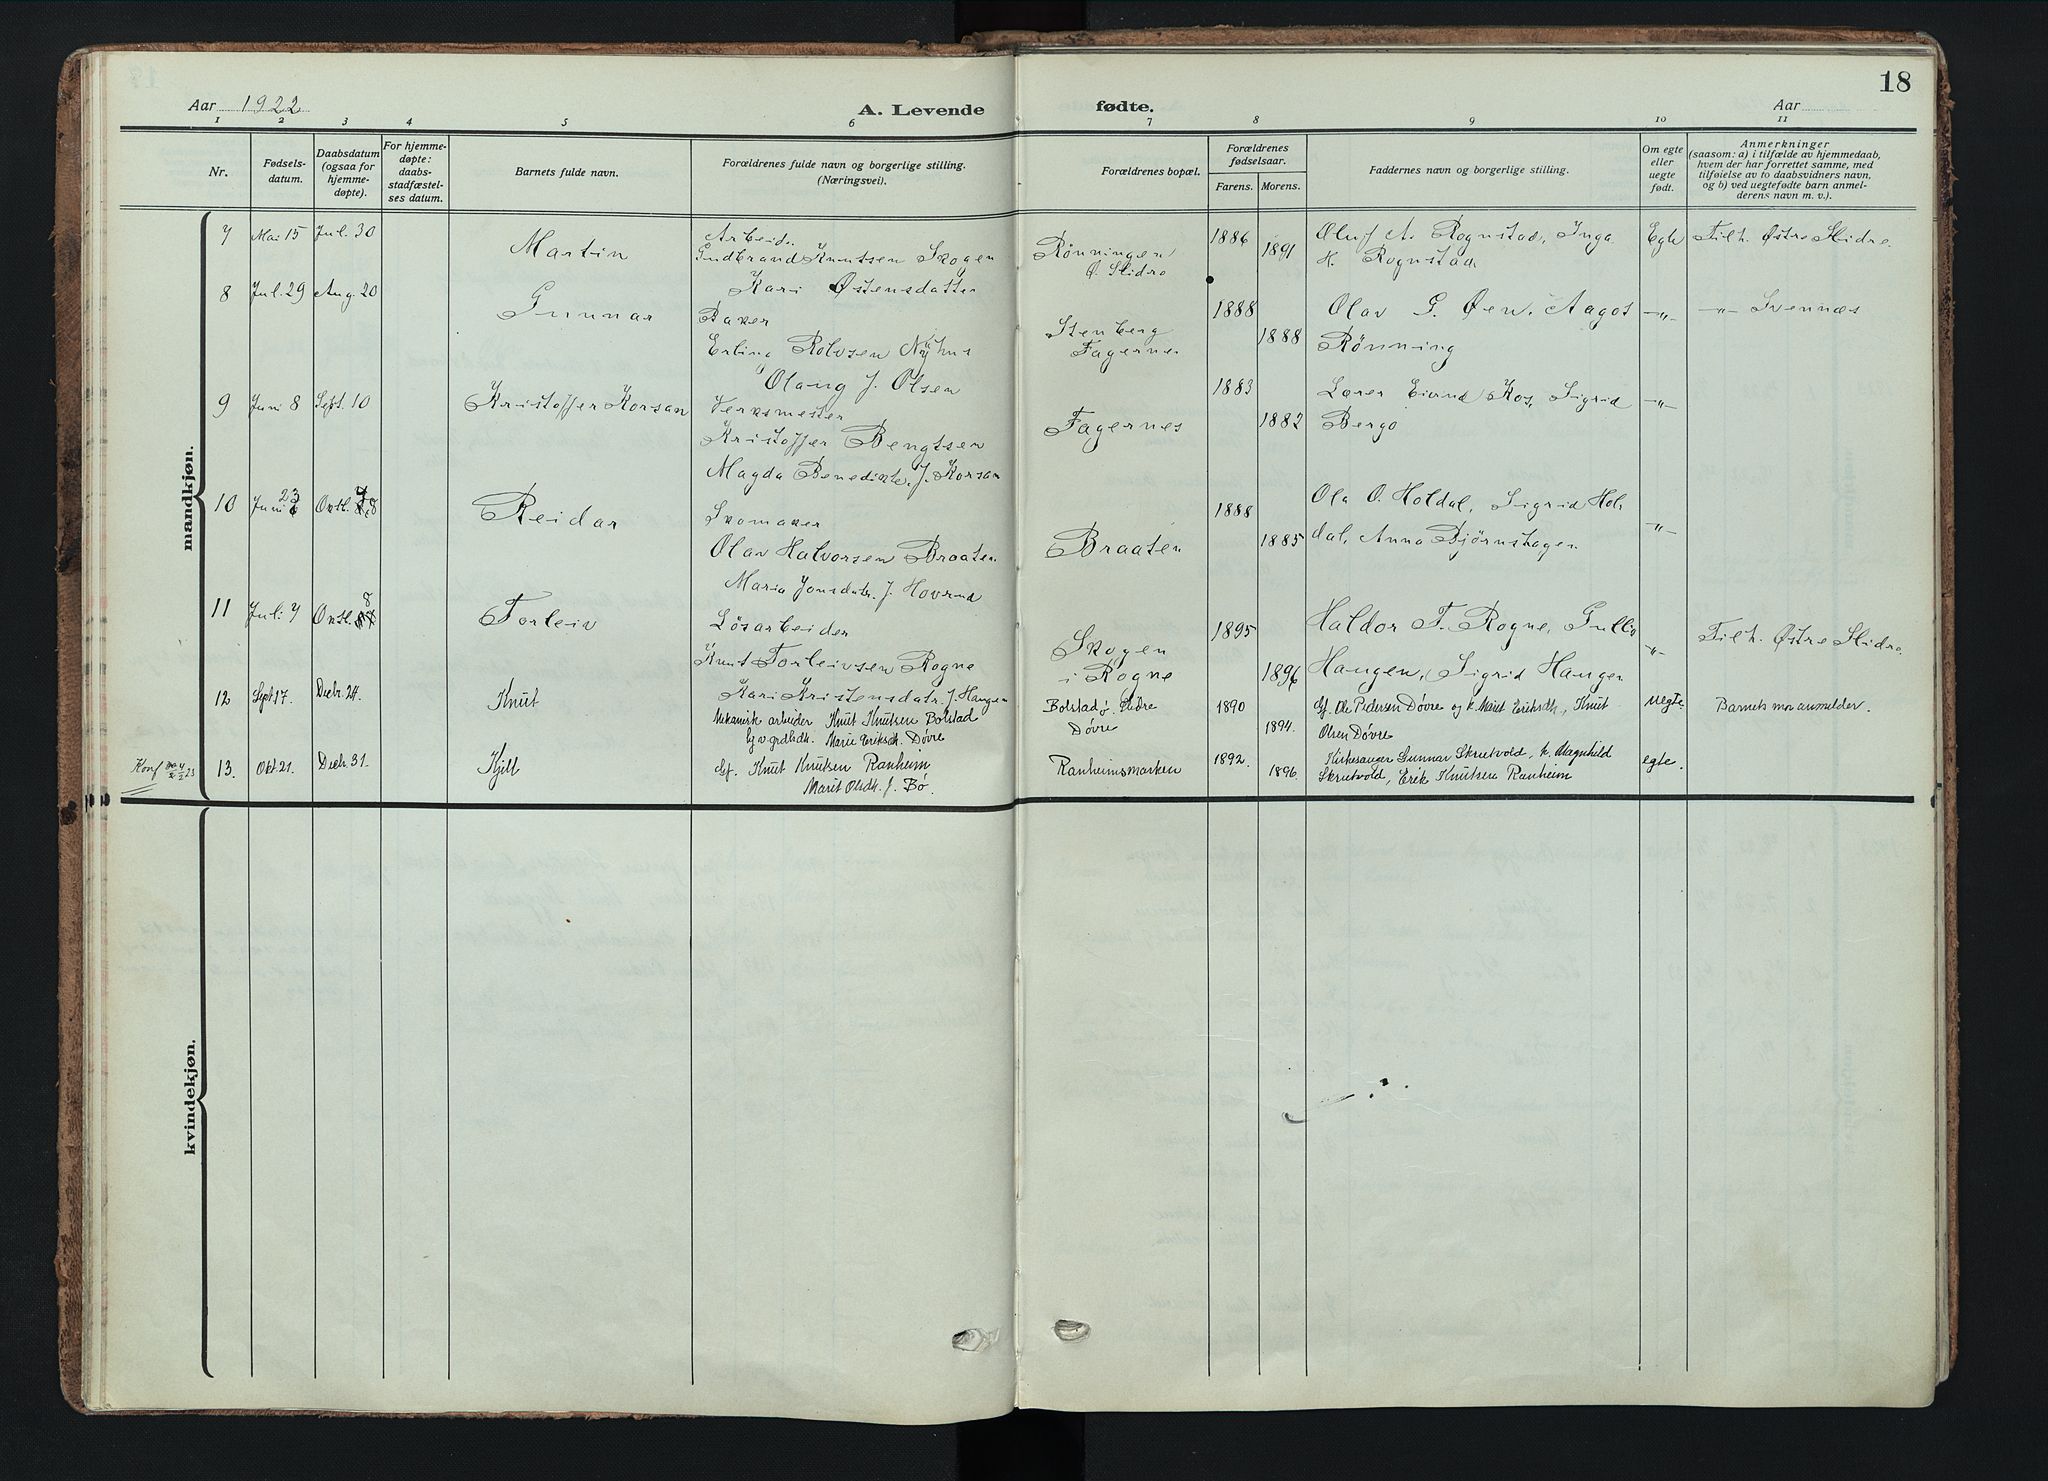 18
Aar 1922
A. Levende
fødte.
Aar
1 2 3 4 5 6 7 8 9 10 11
Nr.
Fødsels-
datum.
Daabsdatum
(ogsaa for
hjemme-
døpte).
For hjemme-
døpte:
daabs-
stadfæstel-
ses datum.
Barnets fulde navn.
Forældrenes fulde navn og borgerlige stilling.
(Næringsvei).
Forældrenes bopæl.
Forældrenes
fødselsaar.
Farens. Morens.
Faddernes navn og borgerlige stilling.
Om egte
eller
uegte
født.
Anmerkninger
(saasom: a) i tilfælde av hjemmedaab,
hvem der har forrettet samme, med
tilføielse av to daabsvidners navn,
og b) ved uegtefødte barn anmel-
derens navn m. v.).
mandkjøn.
7 Mai 15 Jul. 30 Martin
Arbeid.
Gudbrand Knutsen Skogen
Kari Østensdatter
Rønningen
Ø. Slidre
1886 1891
Oluf A. Rognstad, Inga
H. Rognstad
Egte
Tilh. Østre Slidre
8 Jul. 29 Aug. 20 Gunnar
Baker
Erling Rolvsen Nyhus
Olaug J. Olsen
Stenberg
Fagernes
1888 1888
Olav G. Øen, Aagot
Rønning
-"-
-"- Svennæs
9 Juni 8 Sept. 10 Kristoffer Korsan
Verksmester
Kristoffer Bengtsen
Magda Benedikte J. Korsan
Fagernes
1883 1882
Lærer Eivind Kos, Sigrid
Bergo
-"-
10 Juni 23 Oktb. 8 Reidar
Skomaker
Olav Halvorsen Braaten
Maria Jonsdatr. f. Hovrud
Braaten
1888 1885
Ola O. Holdal, Sigrid Hol-
dal, Anna Bjørnshagen
-"-
11 Juli 7 Oktb. 8 Torleiv
Løsarbeider
Knut Torleivsen Rogne
Kari Kristensdatr. f. Haugen
Skogen
i Rogne
1895 1896
Haldor T. Rogne, Gullig
Haugen, Sigrid Haugen
-"-
Tilh. Østre Slidre.
12 Sept 17. Decbr. 24. Knut
Mekanisk arbeider Knut Knutsen Bolstad
Marie Eriksdtr. Døvre
Bolstad Ø. Slidre
Døvre
1890 1894.
Gf. Ole Pedersen Døvre og k. Marit Eriksdtr, Knut
Olsen Døvre
uegte.
Barnets mor anmelder.
13. Okt. 21. Decbr 31. Kjell
Gf. Knut Knutsen Ranheim
Marit Olsdtr. f. Bø.
Ranheimsmarken
1892. 1896.
Kirkesanger Gunnar Skrutvold, k. Magnhild
Skrutvold, Erik Knutsen Ranheim
egte.
kvindekjøn.